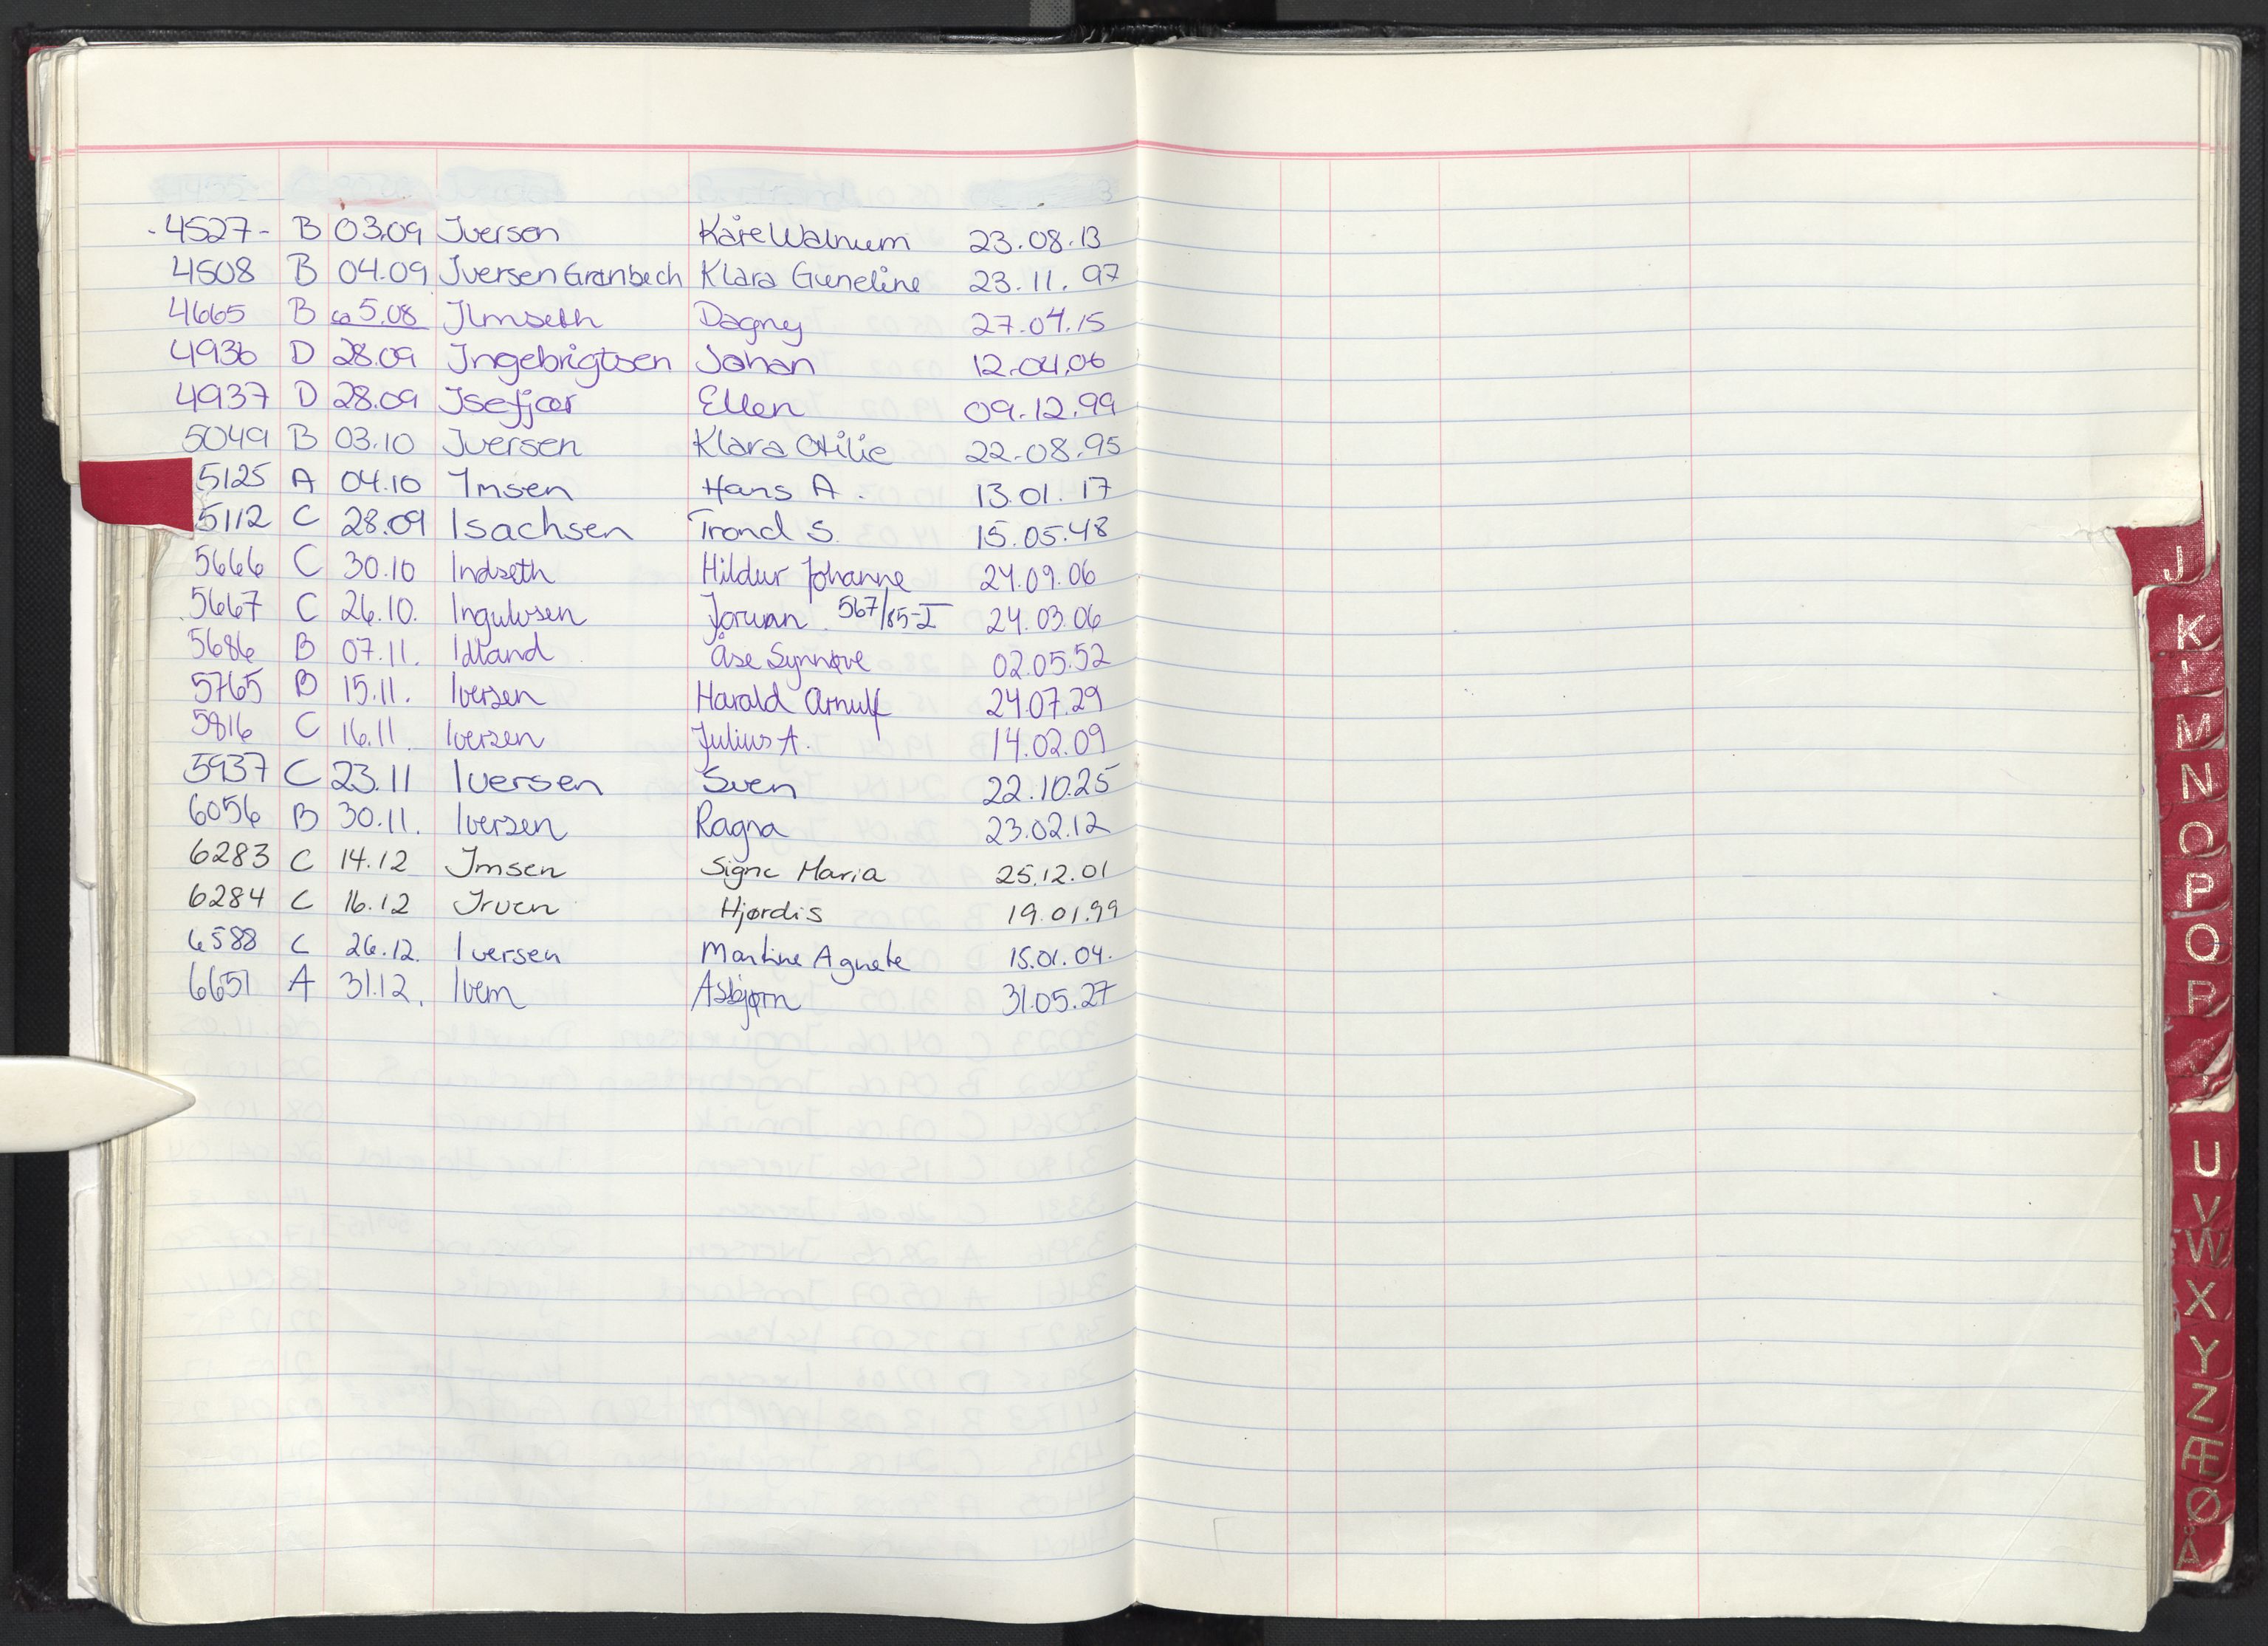 -4527- B 03.09 Iversen Kåre Walnum 23.08.13
4508 B 04.09 Iversen Grønbech Klara Guneline 23.11.97
4665 B ca 5.08 Ilmseth Dagny 27.04.15
4936 D 28.09 Ingebrigtsen Johan 12.04.06
4937 D 28.09 Isefjær Ellen 09.12.99
5049 B 03.10 Iversen Klara Otilie 22.08.95
5125 A 04.10 Imsen Hans A. 13.01.17
5112 C 28.09 Isachsen Trond S. 15.05.48
5666 C 30.10 Indseth Hildur Johanne 24.09.06
5667 C 26.10. Ingulvsen Jorunn 567/85-I 24.03.06
5686 B 07.11. Idland Åse Synnøve 02.05.52
5765 B 15.11. Iversen Harald Arnulf 24.07.29
5816 C 16.11. Iversen Julius A. 14.02.09
5937 C 23.11 Iversen Sven 22.10.25
6056 B 30.11. Iversen Ragna 23.02.12
6283 C 14.12 Imsen Signe Maria 25.12.01
6284 C 16.12 Iruen Hjørdis 19.01.99
6588 C 26.12. Iversen Martine Agnete 15.01.04.
6651 A 31.12. Ivem Asbjørn 31.05.27
J
K
M
N
O
P
Q
R
U
V
W
X
Y
Z
Æ
Ø
Å